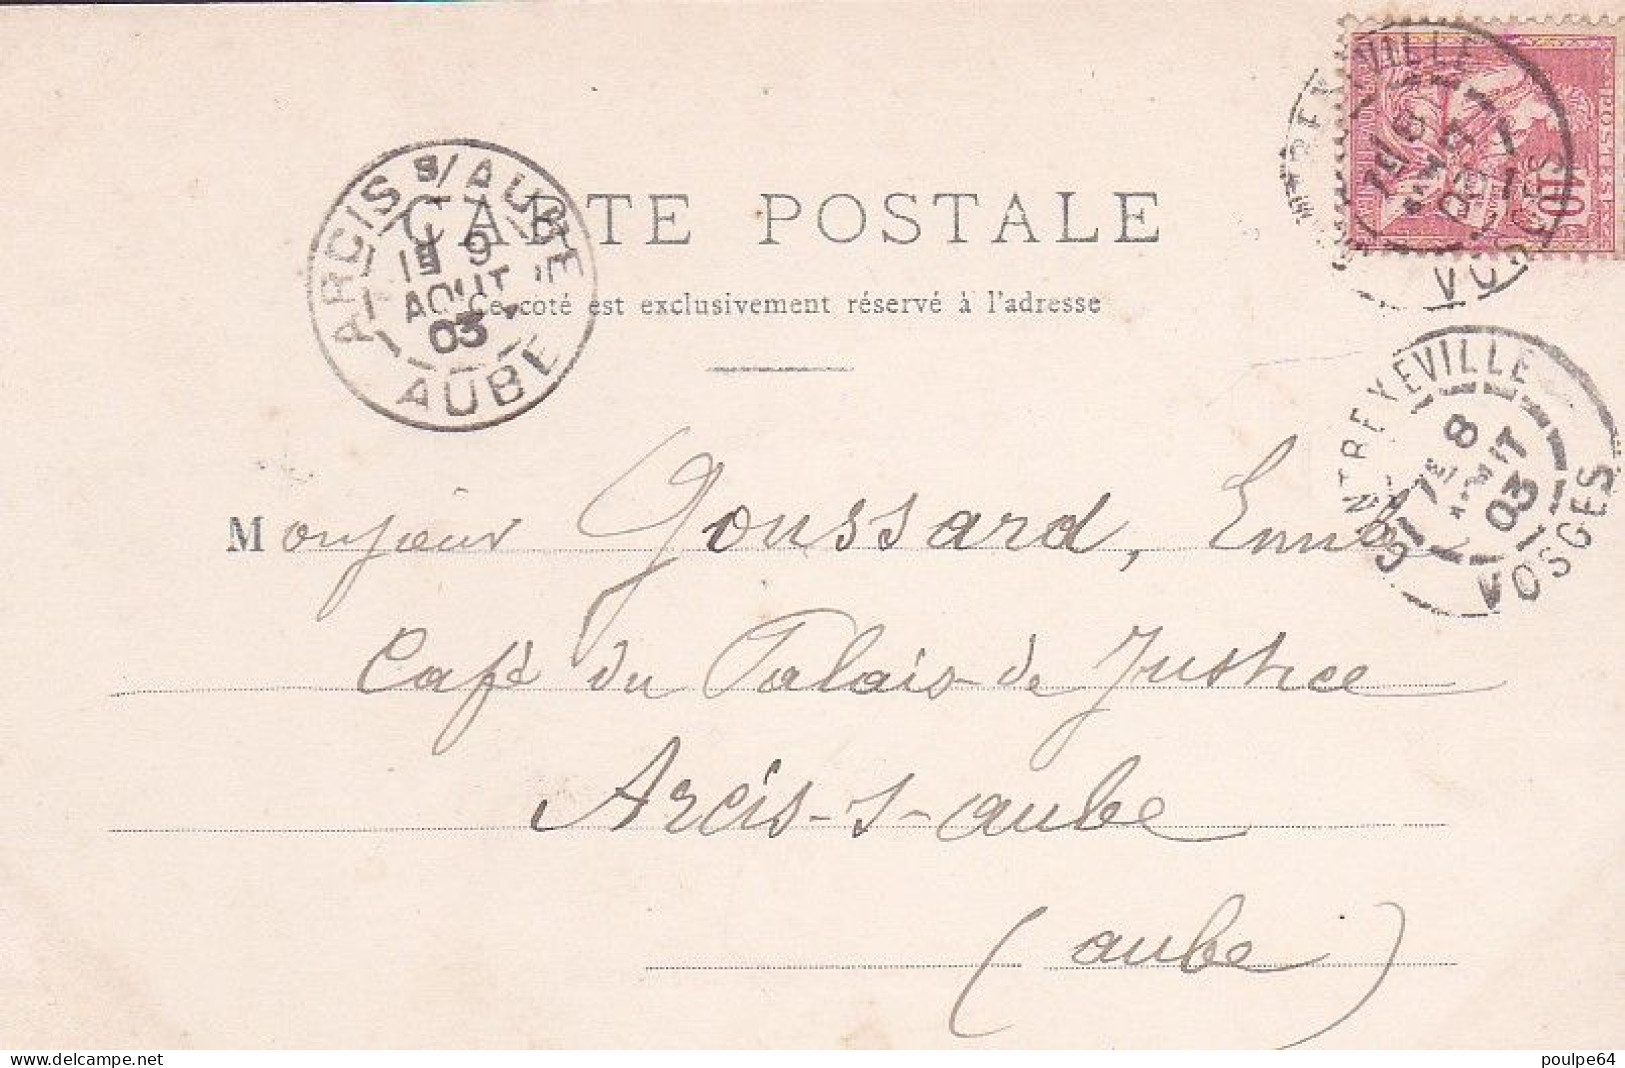 CARTE POSTALE
Ce coté est exclusivement réservé à l'adresse
ARCIS S/AUBE
9
AOUT
03
AUBE
POSTES
10
VOSGES
8
03
VOSGES
Monsieur Goussard, Emile
Café du Palais de Justice
Arcis-s-aube
(aube)
delcampe.net
poulpe64